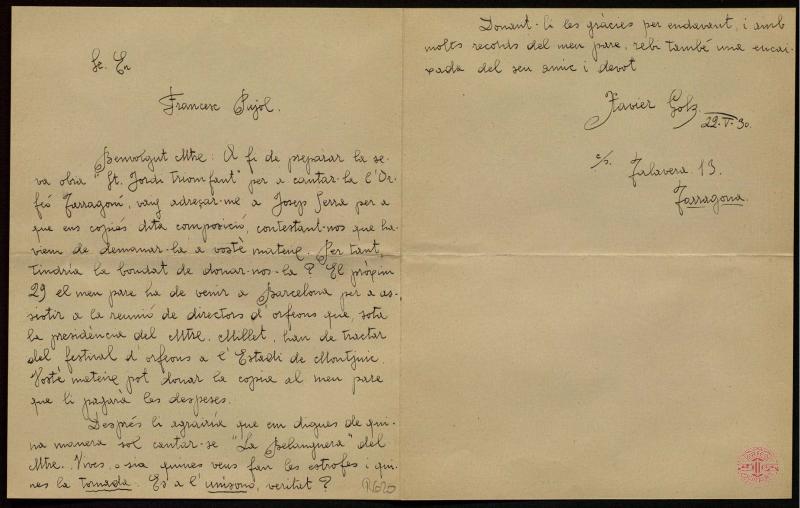 Sr. En
Francesc Pujol.
Benvolgut Mtre: A fi de preparar la se-
va obra "St. Jordi Triomfant" per a cantar-la l'Or-
feó Tarragoní, vaig adreçar-me a Josep Serra per a
que ens copiés dita composició, contestant-nos que ha-
viem de demanar-la a vostè mateix. Per tant,
tindria la bondat de donar-nos-la? El pròxim
29 el meu pare ha de venir a Barcelona per a as-
sistir a la reunió de directors d'orfeons que, sota
la presidència del Mtre. Millet, han de tractar
del festival d'orfeons a l'Estadi de Montjuic.
Vostè mateix pot donar la copia al meu pare
que li pagarà les despeses.
Després li agrairia que em digues de qui-
na manera sol cantar-se "La Balanguera" del
Mtre. Vives, o sia quines veus fan les estrofes i qui-
nes la tornada. Es a l'unisono, veritat?
Donant-li les gràcies per endavant, i amb
molts records del meu pare, rebi també una encai-
xada del seu amic i devot
Xavier Gols
22-V-30.
c/s. Talavera 13.
Tarragona